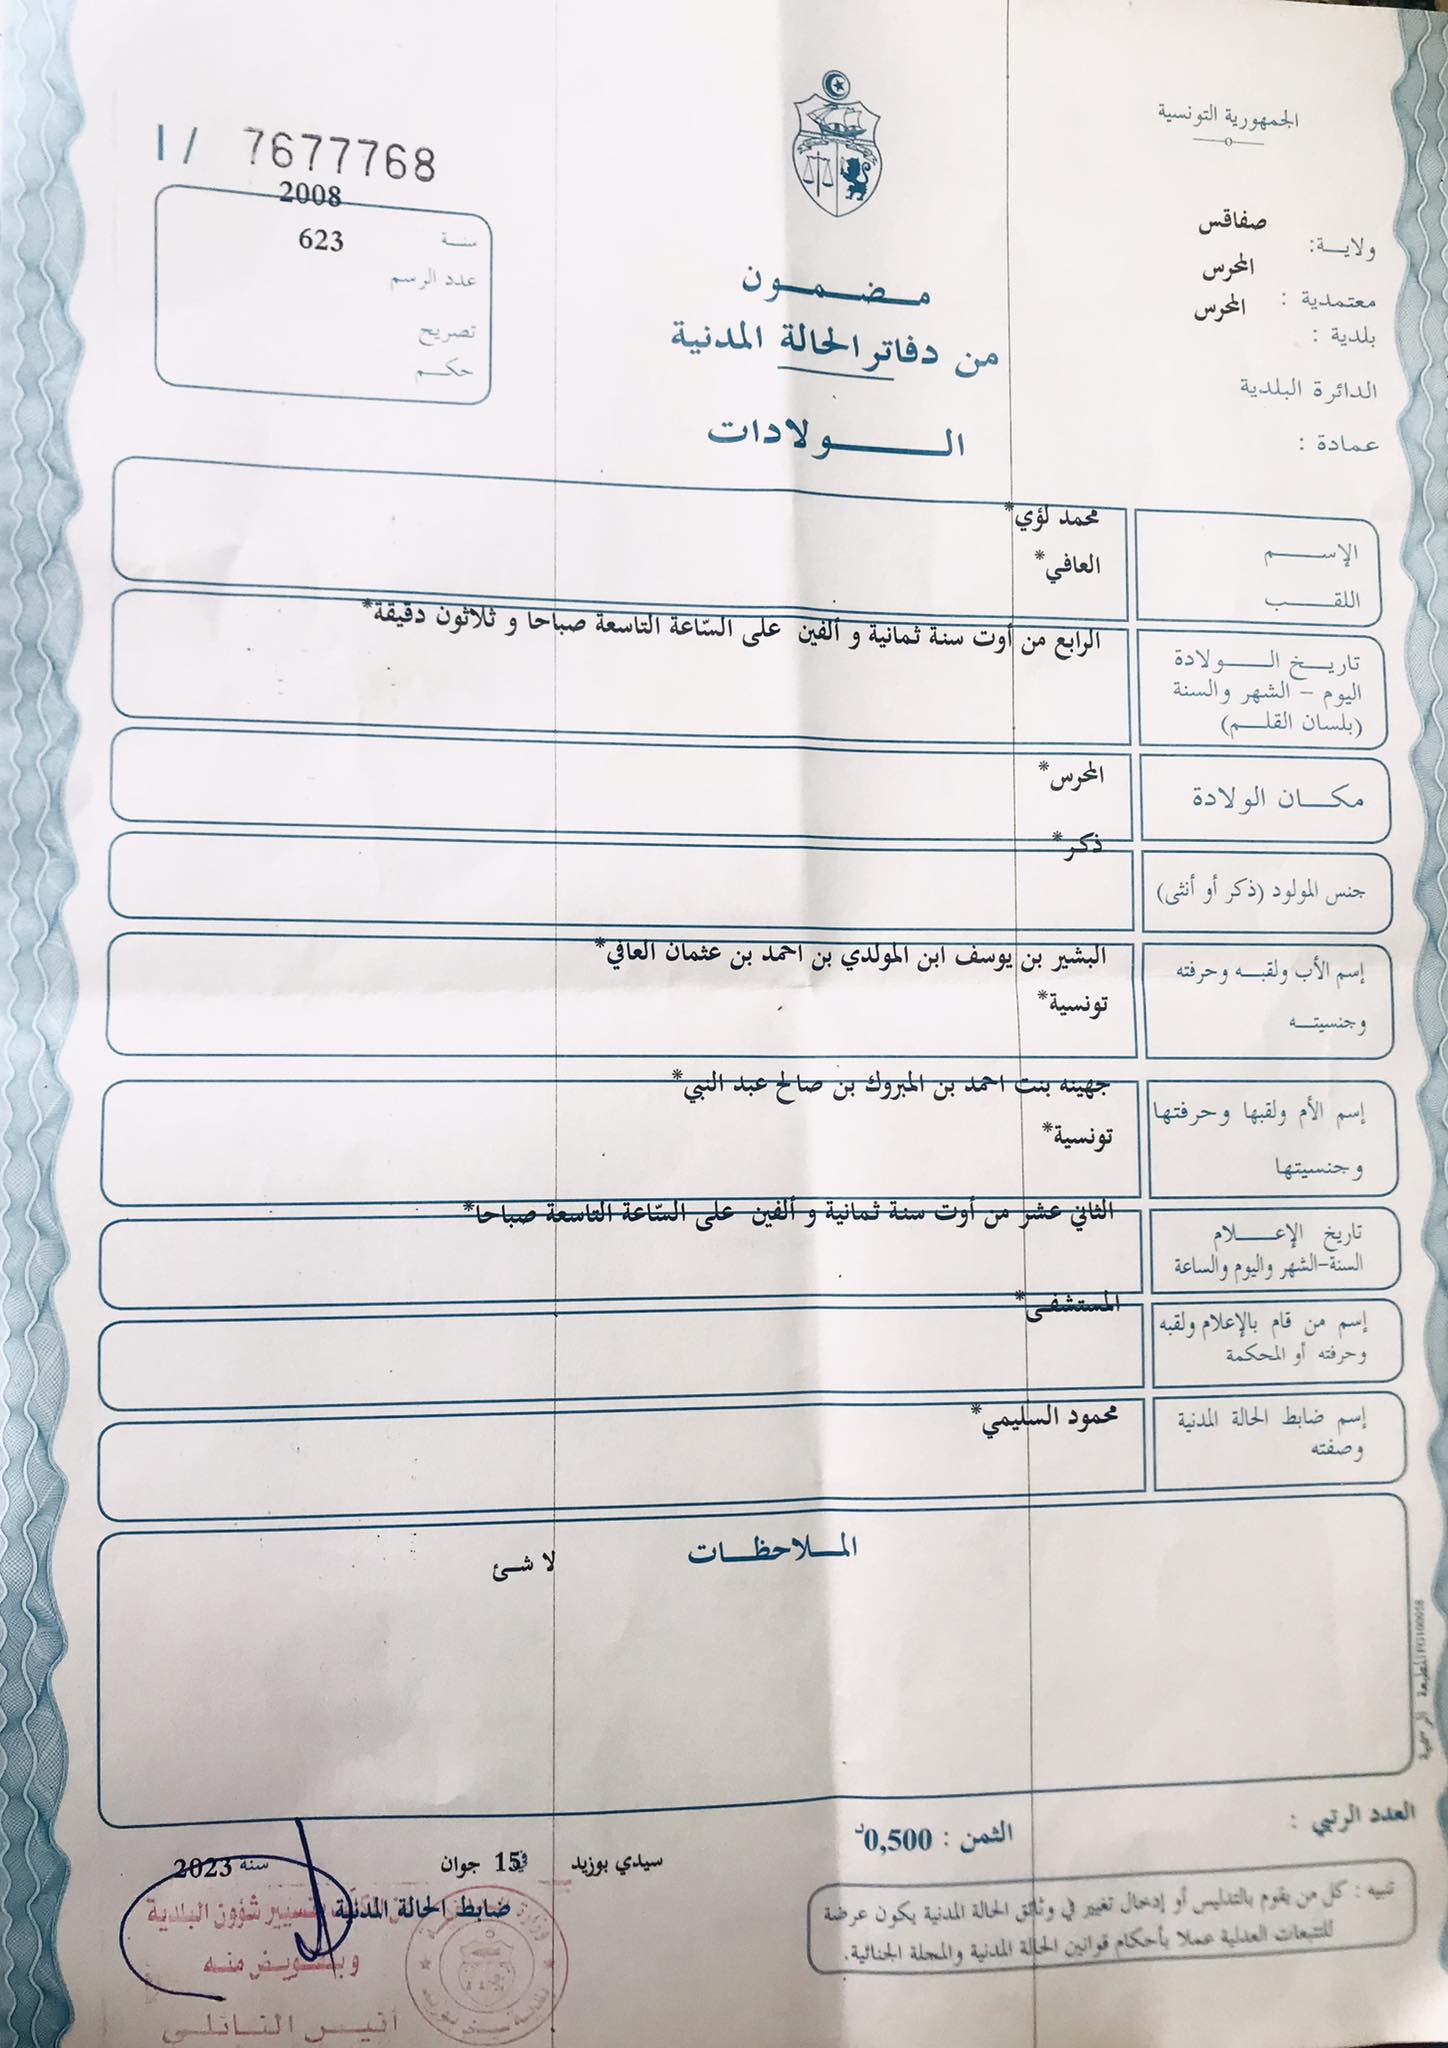 الجمهورية التونسية
I / 7677768
ولاية: صفاقس
معتمدية : المحرس
بلدية : المحرس
الدائرة البلدية
عمادة :
سنة 2008
عدد الرسم 623
تصريح
حكم
مضمون
من دفاتر الحالة المدنية
الولادات
الإسم محمد لؤي*
اللقب العافي*
تاريخ الولادة
اليوم - الشهر والسنة
(بلسان القلم)
الرابع من أوت سنة ثمانية و ألفين على السّاعة التاسعة صباحا و ثلاثون دقيقة*
مكان الولادة المحرس*
جنس المولود (ذكر أو أنثى) ذكر*
إسم الأب ولقبه وحرفته
وجنسيته
البشير بن يوسف ابن المولدي بن احمد بن عثمان العافي*
تونسية*
إسم الأم ولقبها وحرفتها
وجنسيتها
جهينه بنت احمد بن المبروك بن صالح عبد النبي*
تونسية*
تاريخ الإعلام
السنة-الشهر واليوم والساعة
الثاني عشر من أوت سنة ثمانية و ألفين على السّاعة التاسعة صباحا*
إسم من قام بالإعلام ولقبه
وحرفته أو المحكمة
المستشفى*
إسم ضابط الحالة المدنية
وصفته
محمود السليمي*
الملاحظات
لا شئ
المطبعة الرسمية
العدد الرتبي :
الثمن : 0,500د
سيدي بوزيد في 15 جوان سنة 2023
ضابط الحالة المدنية
تنبيه : كل من يقوم بالتدليس أو إدخال تغيير في وثائق الحالة المدنية يكون عرضة
للتتبعات العدلية عملا بأحكام قوانين الحالة المدنية والمجلة الجنائية.
بتسيير شؤون البلدية
وبتفويض منه
أنيس النائلي